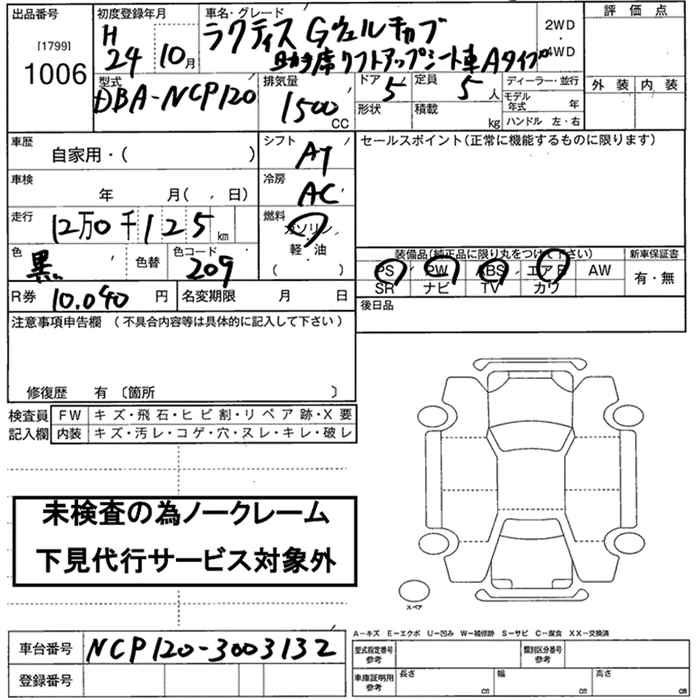 出品番号
[1799]
1006
初度登録年月
H
24 10月
車名・グレード
ラクティス Gウェルキャブ
助手席リフトアップシート車Aタイプ
2WD
4WD
評価点
外装 内装
型式
DBA-NCP120
排気量
1500
CC
ドア 5
形状
定員 5人
積載 kg
ディーラー・並行
モデル年式 年
ハンドル 左・右
車歴
自家用・( )
シフト
AT
セールスポイント(正常に機能するものに限ります)
車検
年 月( 、 日)
冷房
AC
走行
12万0千125km
燃料
ガソリン
軽・油
( )
色
黒
色替
色コード
209
装備品(純正品に限り丸をつけて下さい)
新車保証書
PS PW ABS エアB AW
SR ナビ TV カワ
有・無
R券 10.040 円
名変期限 月 日
後日品
注意事項申告欄(不具合内容等は具体的に記入して下さい)
修復歴 有〔箇所 〕
検査員
記入欄
FW キズ・飛石・ヒビ割・リペア跡・X要
内装 キズ・汚レ・コゲ・穴・ヌレ・キレ・破レ
未検査の為ノークレーム
下見代行サービス対象外
スペア
車台番号 NCP120-3003132
登録番号
A-キズ E-エクボ U-凹み W-補修跡 S-サビ C-腐食 XX-交換済
型式指定番号
参考
類別区分番号
参考
車庫証明用
参考
長さ cm
幅 cm
高さ cm